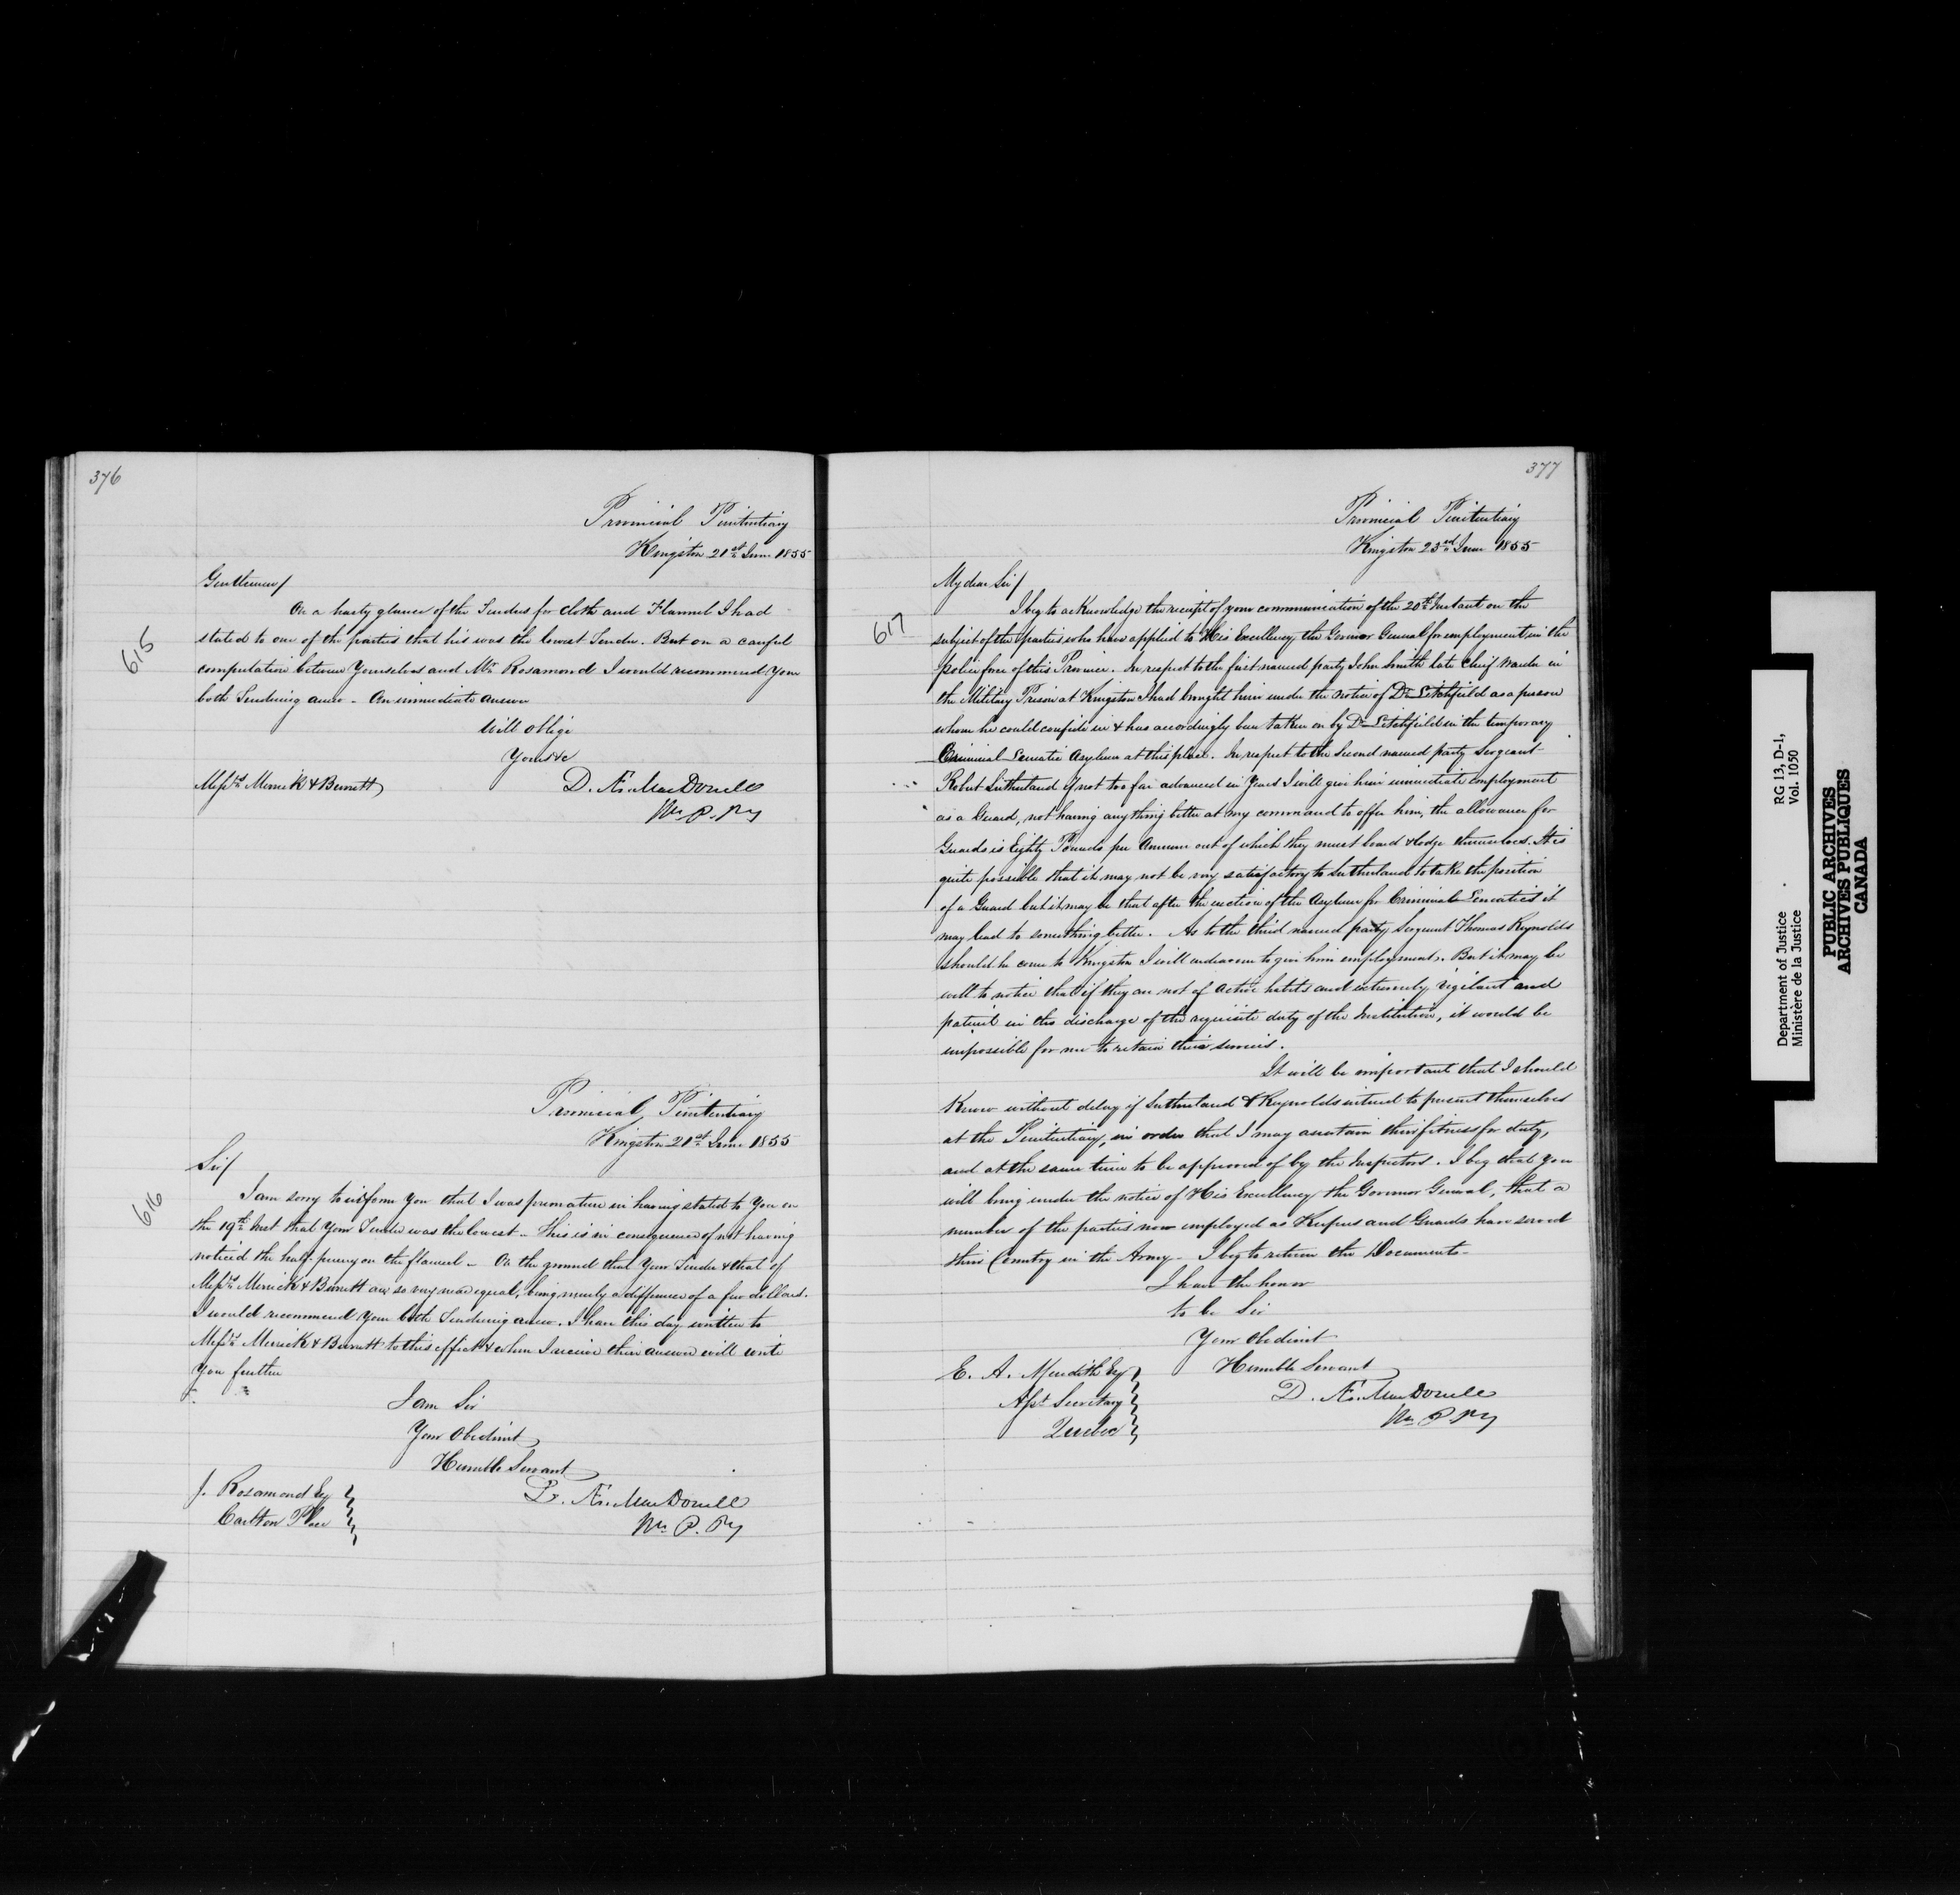 376
Provincial Penitentiary
Kingston 21st June 1855
615
Gentlemen/
On a hasty glance of the Tenders for Cloth and Flannel I had
stated to one of the parties that his was the lowest Tender. But on a careful
computation between Yourselves and Mr. Rosamond I would recommend Your
both Tendering anew - An immediate answer
Will oblige
Yours &c
Messrs Merrick & Burnett
D. Æ. MacDonell
Wn P. Py
Provincial Penitentiary
Kingston 21st June 1855
616
Sir/
I am sorry to inform You that I was premature in having stated to You on
the 19th Inst that Your Tender was the lowest - This is in consequence of not having
noticed the half penny on the flannel - On the ground that Your Tender & that of
Messrs Merrick & Burnett are so very near equal, being merely a difference of a few dollars.
I would recommend Your both Tendering anew. I have this day written to
Messrs Merrick & Burnett to this effect & when I receive their answer will write
You further
I am Sir
Your Obedient
Humble Servant
J. Rosamond Esq
Carlton Place
D. Æ. MacDonell
Wn P. Py
377
Provincial Penitentiary
Kingston 23rd June 1855
617
My dear Sir/
I beg to acknowledge the receipt of your communication of the 20th Instant on the
subject of the parties who have applied to His Excellency the Governor General for employment in the
police force of this Province. In respect to the first named party John Smith late Chief Warder in
the Military Prison at Kingston I had brought him under the notice of Dr Litchfield as a person
whom he could confide in & has accordingly been taken on by Dr Litchfield in the temporary
Criminal Lunatic Asylum at this place. In respect to the Second named party Sergeant
Robert Sutherland if not too far advanced in Years I will give him immediate employment
as a Guard, not having any thing better at my command to offer him, the allowance for
Guards is Eighty Pounds per Annum out of which they must board & lodge themselves. It is
quite possible that it may not be very satisfactory to Sutherland to take the position
of a Guard but it may be that after the erection of the Asylum for Criminal Lunatics it
may lead to something better. As to the third named party Sergeant Thomas Reynolds
should he come to Kingston I will endeavour to give him employment. But it may be
well to notice that if they are not of active habits and extremely vigilant and
patient in the discharge of the requisite duty of the Institution, it would be
impossible for me to retain their services.
It will be important that I should
Know without delay if Sutherland & Reynolds intend to present themselves
at the Penitentiary, in order that I may ascertain their fitness for duty,
and at the same time to be approved of by the Inspectors. I beg that You
will bring under the notice of His Excellency the Governor General, that a
number of the parties now employed as Keepers and Guards have served
their Country in the Army - I beg to return the Documents -
I have the honor
to be Sir
Your Obedient
Humble Servant
E. A. Meredith Esq
Asst Secretary
Quebec
D. Æ. MacDonell
Wn P. Py
Department of Justice
Ministère de la Justice
RG 13, D-1,
Vol. 1050
PUBLIC ARCHIVES
ARCHIVES PUBLIQUES
CANADA